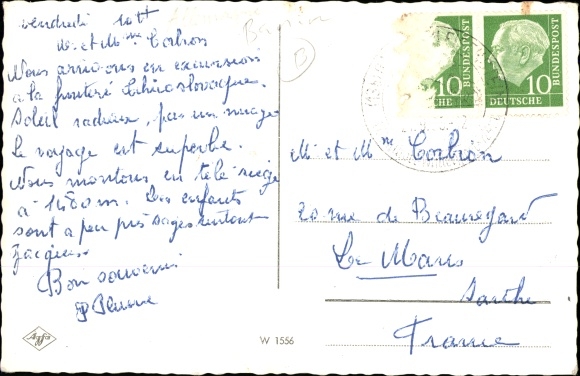 vendredi 10 att
Mr et Mme Corbron
Nous arrivons en excursion
a la frontière Tchécoslovaque.
Soleil radieux, pas un nuage
Le voyage est superbe.
Nous montons en télé siège
à 1400 m. Les enfants
sont a peu près sages surtout
Jacques.
Bon souvenir
Mr et Mme Corbron
20 rue de Beauregard
Le Mans
Sarthe
France
10
DEUTSCHE
BUNDESPOST
10
DEUTSCHE
BUNDESPOST
Agfa
W 1556